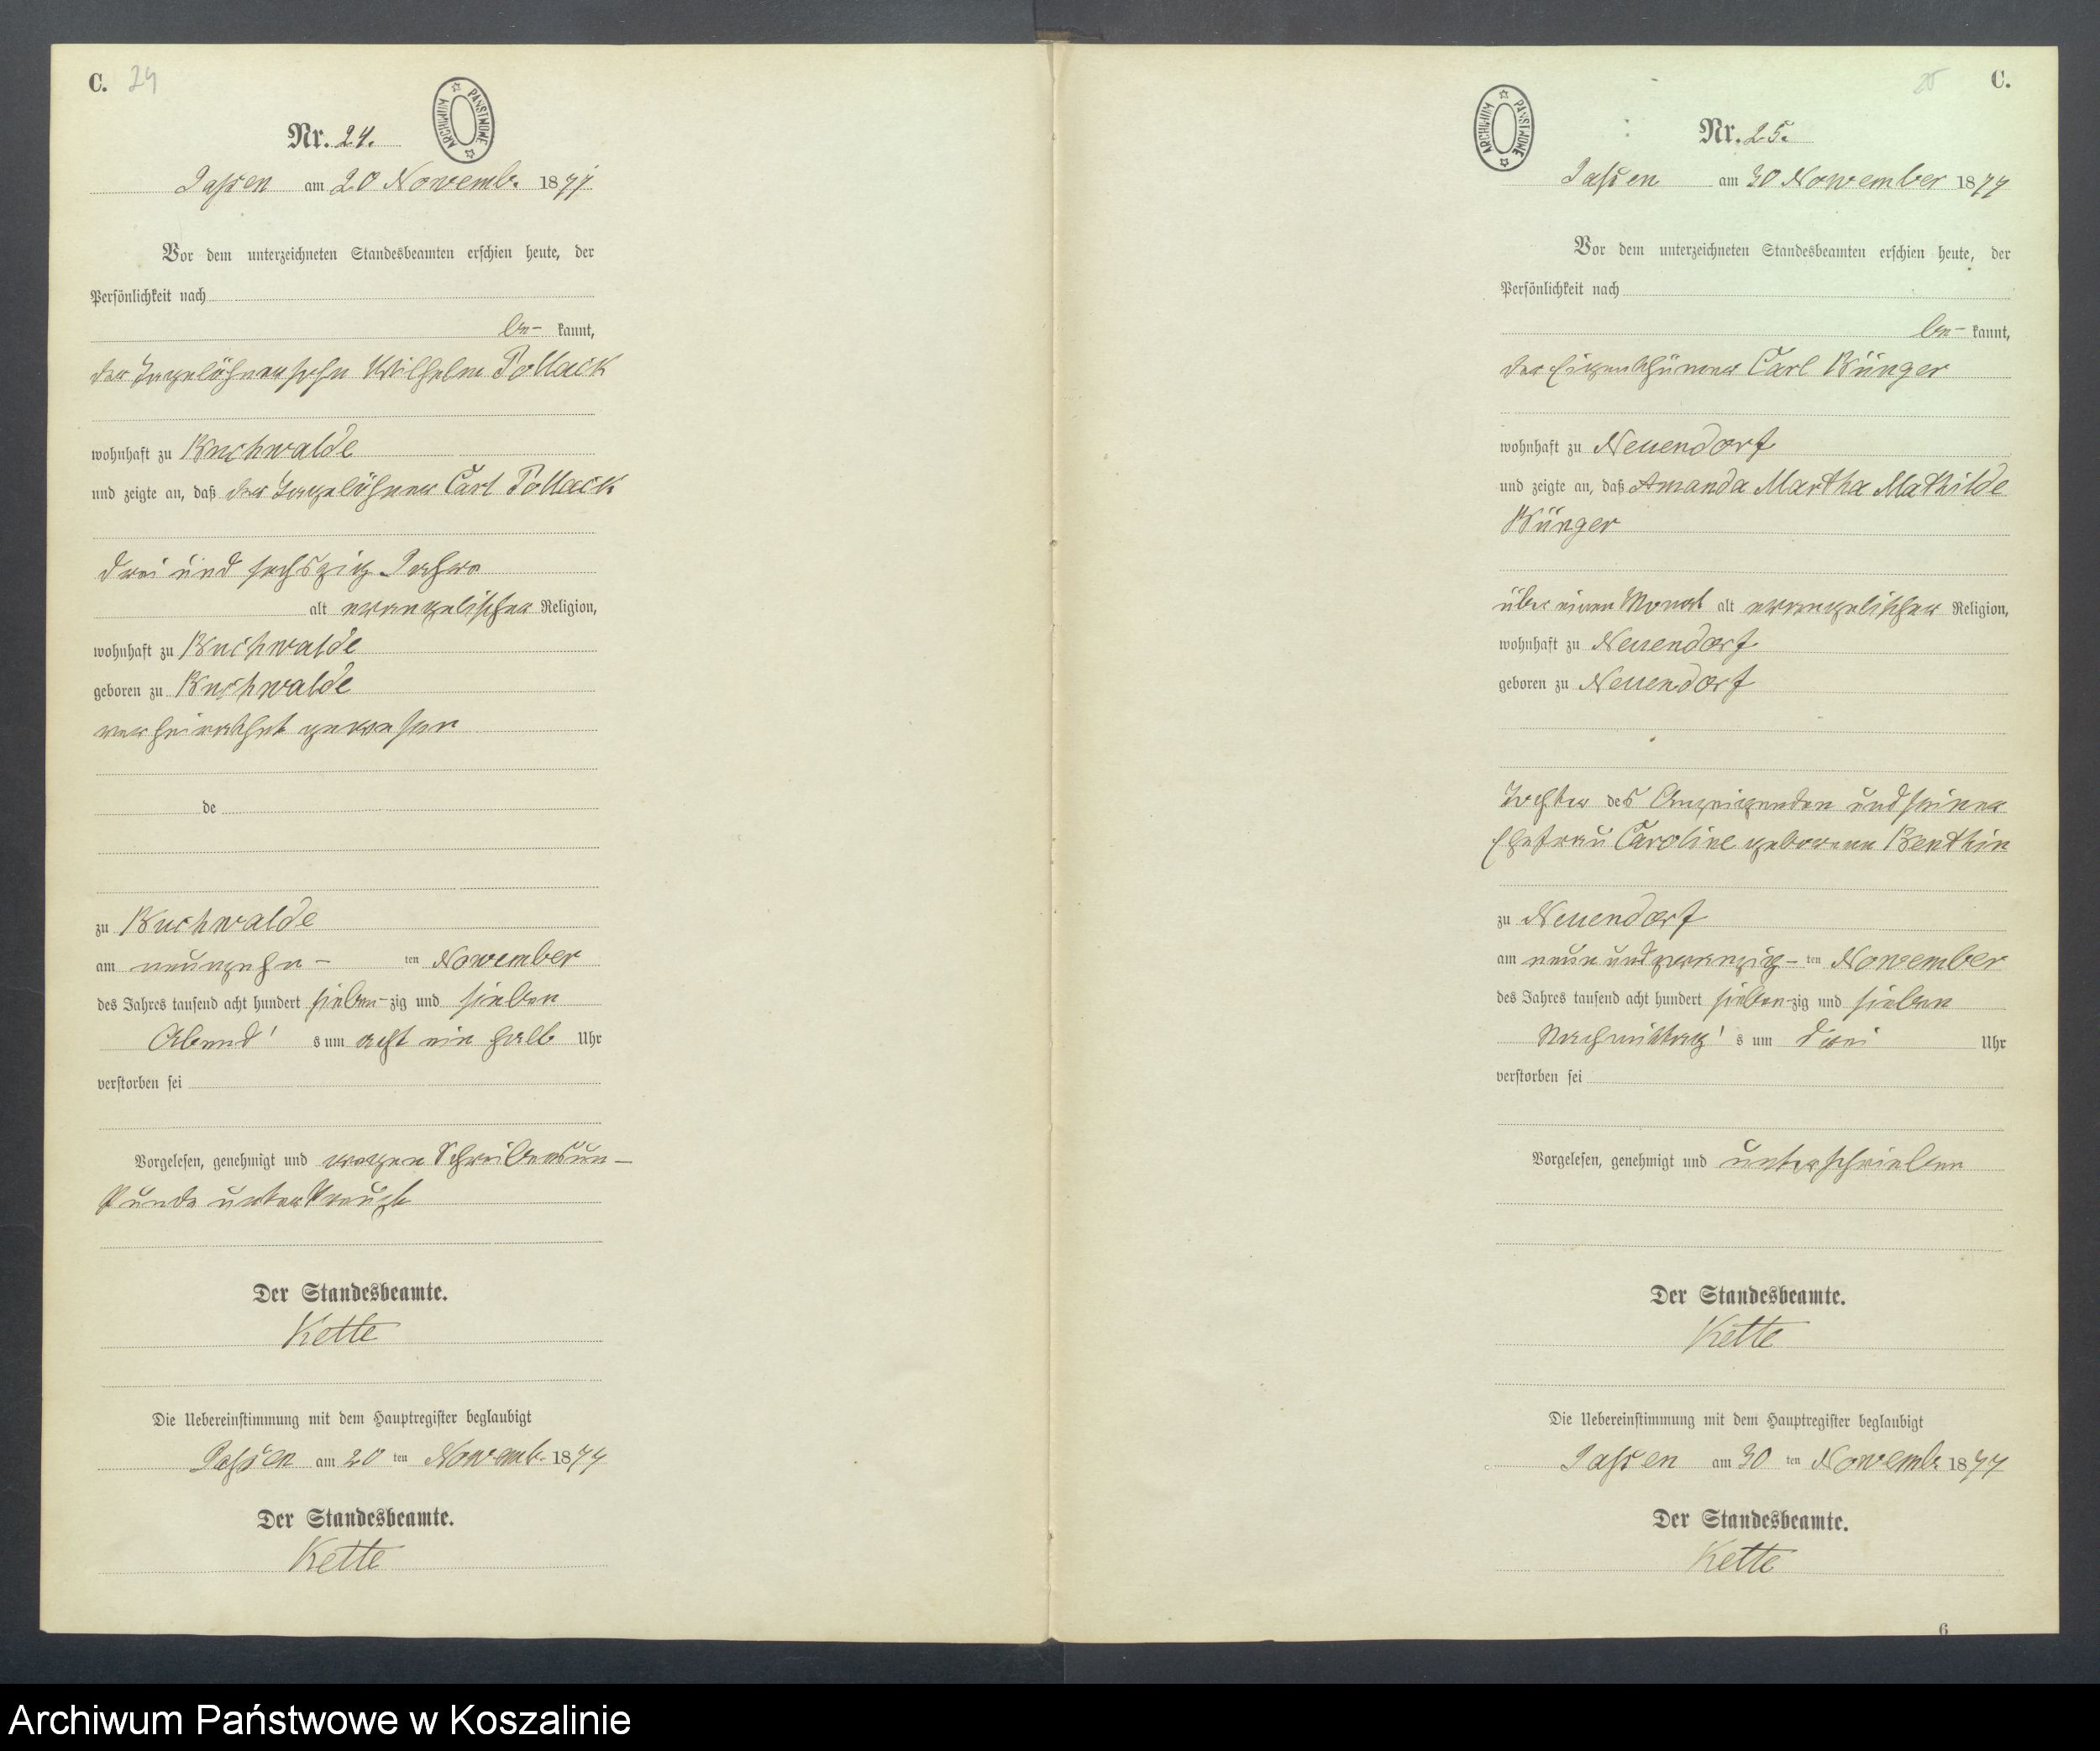 C. 24
ARCHIWUM PAŃSTWOWE
Nr. 24.
Jassen am 20 Novemb. 1877.
Vor dem unterzeichneten Standesbeamten erschien heute, der
Persönlichkeit nach
be- kannt,
der Tagelöhnersohn Wilhelm Pollack
wohnhaft zu Buchwalde
und zeigte an, daß der Tagelöhner Carl Pollack
drei und sechszig Jahre
alt evangelischer Religion,
wohnhaft zu Buchwalde
geboren zu Buchwalde
verheirathet gewesen
de
zu Buchwalde
am neunzehn- ten November
des Jahres tausend acht hundert sieben-zig und sieben
Abend's um acht ein halb Uhr
verstorben sei
Vorgelesen, genehmigt und wegen Schreibensun-
kunde unterkreuzt
Der Standesbeamte.
Kette
Die Uebereinstimmung mit dem Hauptregister beglaubigt
Jassen am 20 ten Novemb. 1877
Der Standesbeamte.
Kette
25 C.
ARCHIWUM PAŃSTWOWE
Nr. 25.
Jassen am 30 November 1877
Vor dem unterzeichneten Standesbeamten erschien heute, der
Persönlichkeit nach
be- kannt,
der Eigenthümer Carl Bünger
wohnhaft zu Neuendorf
und zeigte an, daß Amanda Martha Mathilde
Bünger
über einen Monat alt evangelischer Religion,
wohnhaft zu Neuendorf
geboren zu Neuendorf
Tochter des Anzeigenden und seiner
Ehefrau Caroline geborene Benthin
zu Neuendorf
am neun und zwanzig- ten November
des Jahres tausend acht hundert sieben-zig und sieben
Nachmittag's um drei Uhr
verstorben sei
Vorgelesen, genehmigt und unterschrieben
Der Standesbeamte.
Kette
Die Uebereinstimmung mit dem Hauptregister beglaubigt
Jassen am 30 ten Novemb. 1877
Der Standesbeamte.
Kette
6
Archiwum Państwowe w Koszalinie